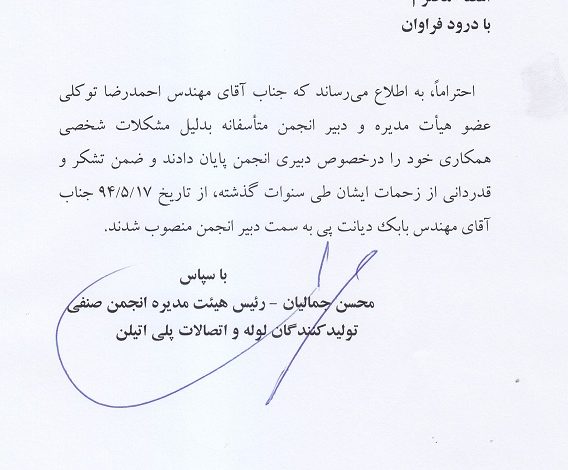 با درود فراوان
احتراماً، به اطلاع می‌رساند که جناب آقای مهندس احمدرضا توکلی
عضو هیأت مدیره و دبیر انجمن متأسفانه بدلیل مشکلات شخصی
همکاری خود را درخصوص دبیری انجمن پایان دادند و ضمن تشکر و
قدردانی از زحمات ایشان طی سنوات گذشته، از تاریخ ۹۴/۵/۱۷ جناب
آقای مهندس بابک دیانت پی به سمت دبیر انجمن منصوب شدند.
با سپاس
محسن جمالیان – رئیس هیئت مدیره انجمن صنفی
تولیدکنندگان لوله و اتصالات پلی اتیلن